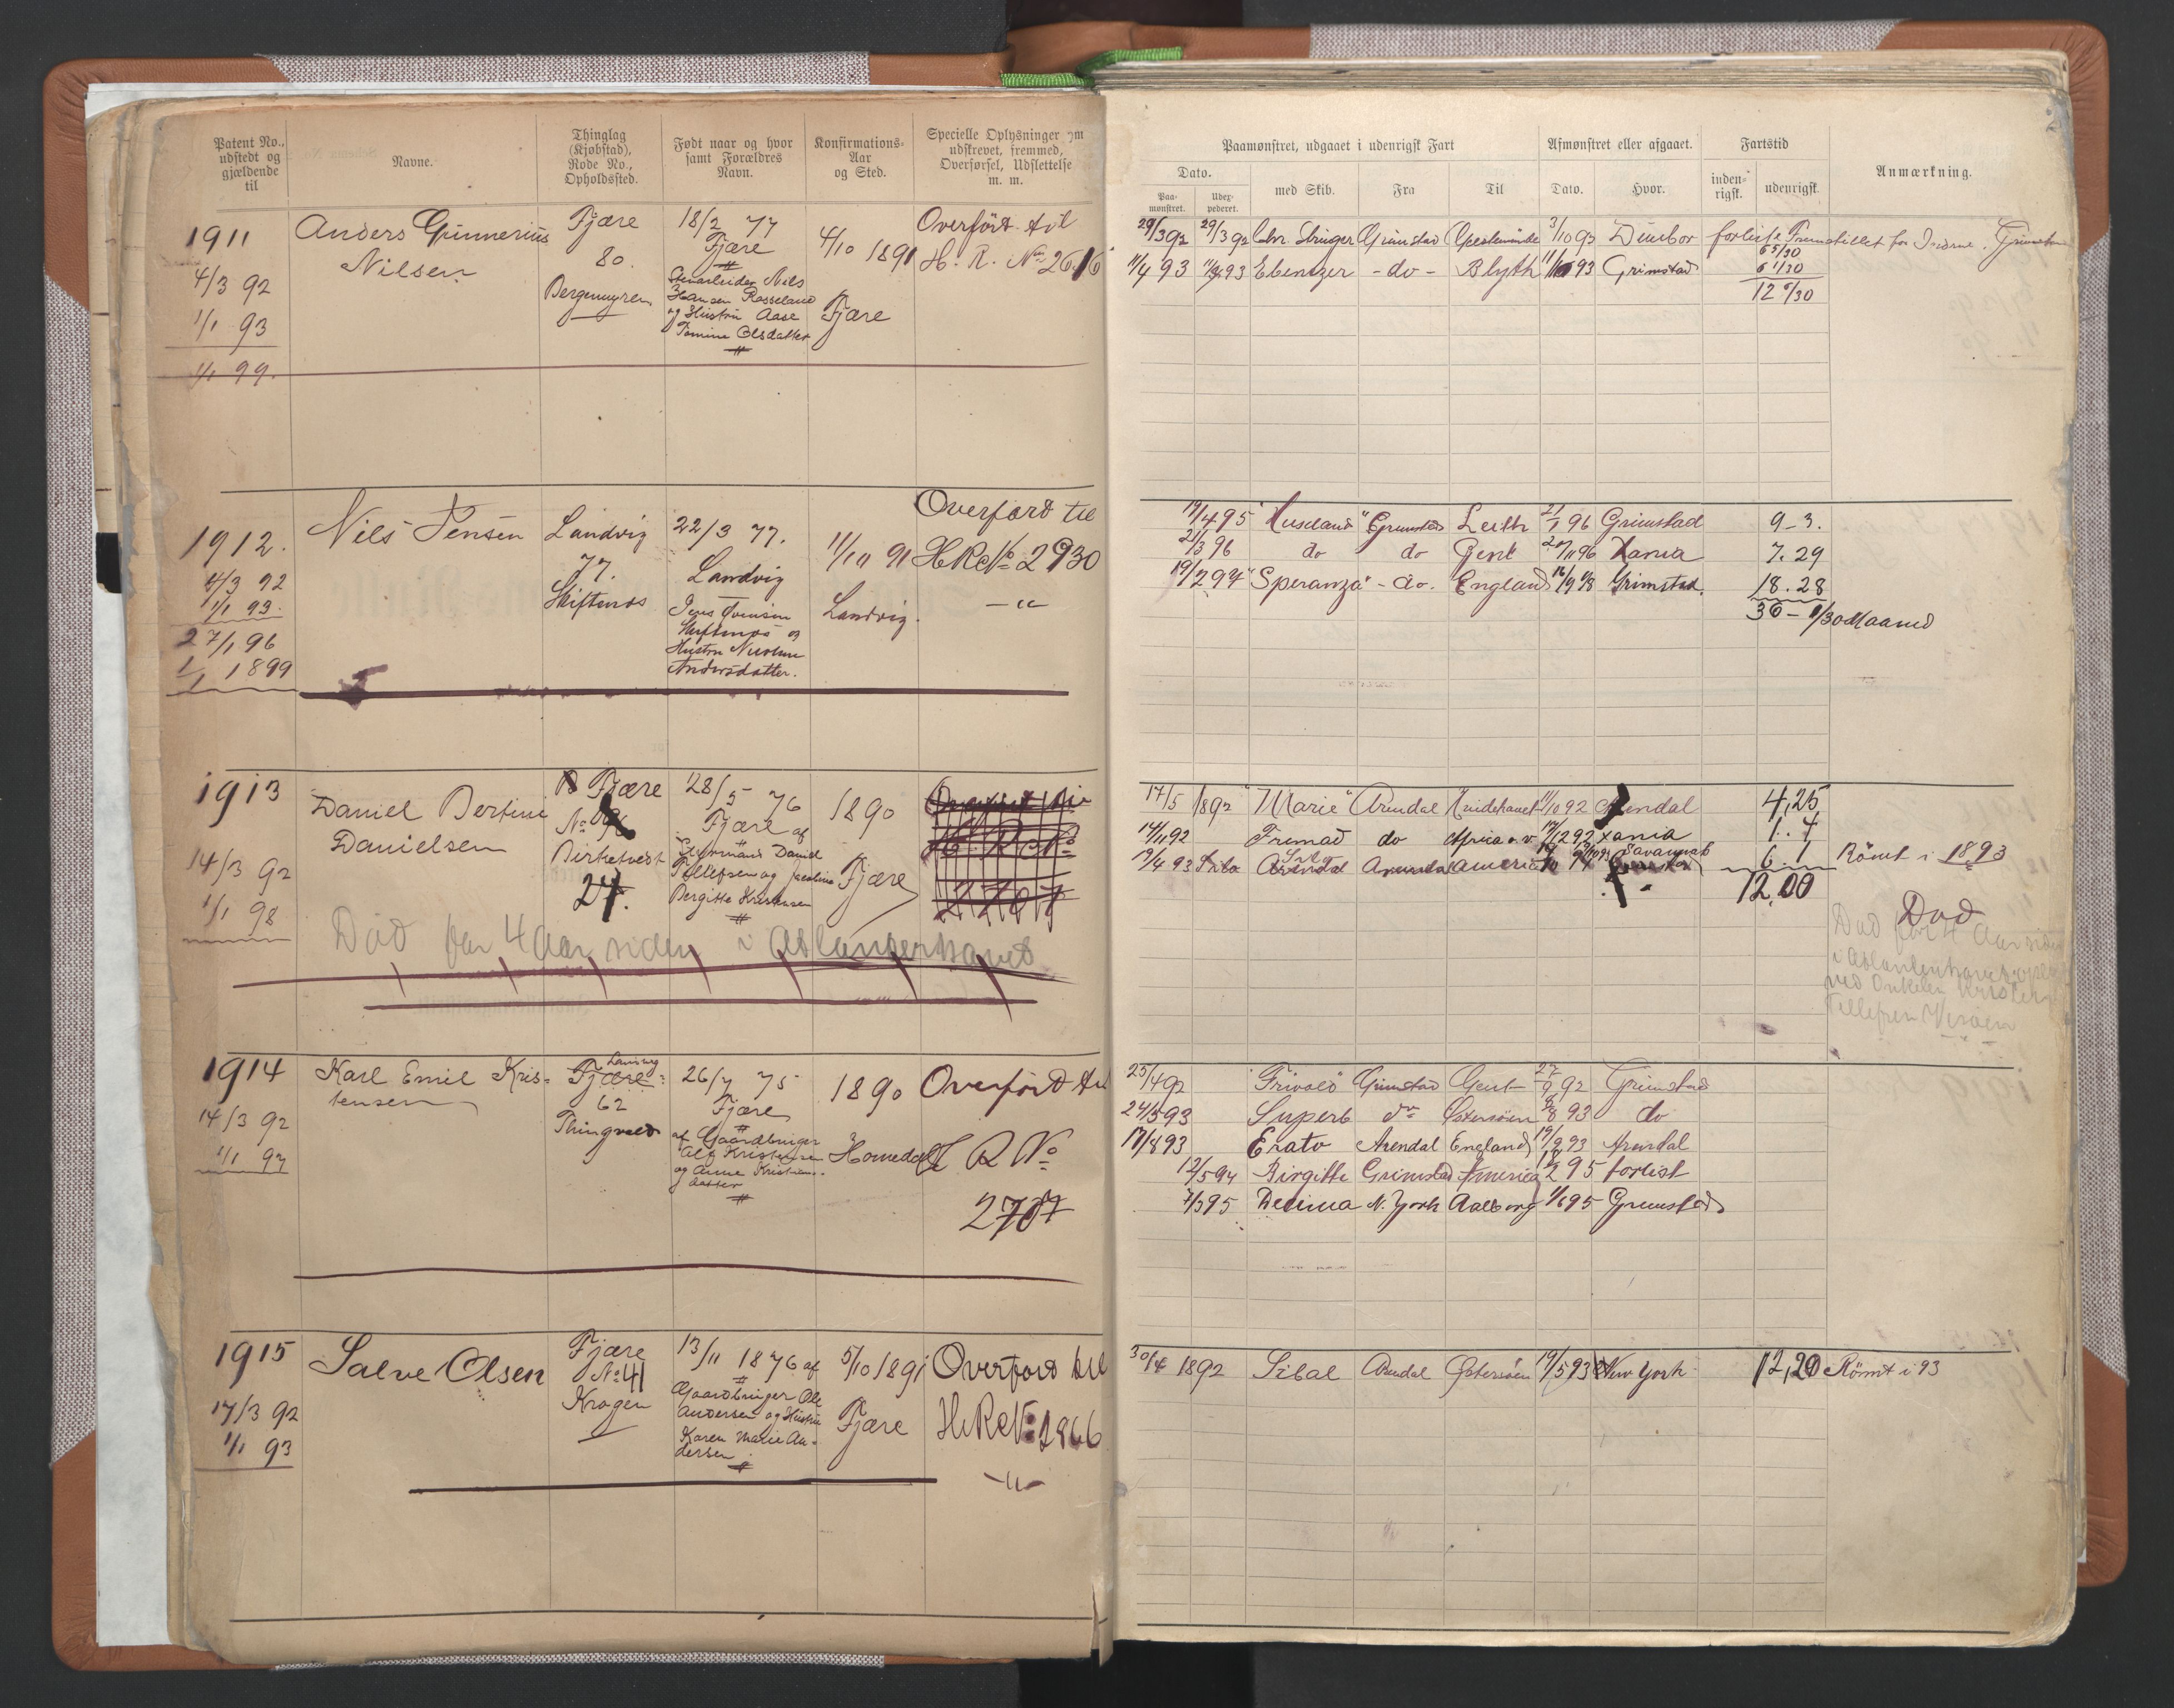 Patent No.,
udstedt og
gjældende
til
Navne.
Thinglag
(Kjøbstad),
Rode No.,
Opholdssted.
Født naar og hvor
samt Forældres
Navn.
Konfirmations-
Aar
og Sted.
Specielle Oplysninger om
udskrevet, fremmed,
Overførsel, Udslettelse
m. m.
1911
4/3 92
1/1 93
1/1 99.
Anders Gunnerius
Nilsen
Fjære
80.
Bergemyren
18/2 77
Fjære
Stenarbeider Nils
Hansen Rosseland
og Hustru Aase
Tomine Olsdatter
4/10 1891
Fjære
Overført til
H. R. No 2616
1912.
4/3 92
1/1 93.
27/1 96
1/1 1899
Nils Jensen
Landvig
77.
Skiftenes
22/3 77.
Landvig
Jens Svensen
Skiftenes og
Hustru Nicoline
Andersdatter.
11/10 91
Landvig.
Overførd til
H R No 2930
1913
14/3 92
1/1 98
Daniel Bertine
Danielsen
Fjære
No
Birketvedt
24.
28/5 76
Fjære af
Styrmand Daniel
Tellefsen og Jacobine
Bergitte Kristensen
1890
Fjære
Overført til
H. R No
2707
Død for 4 Aar siden i Atlanterhavet
1914
14/3 92
1/1 97
Karl Emil Kris-
tensen
Landvig
Fjære
62
Thingvold
26/7 75
Fjære
af Gaardbruger
Alf Kristensen
og Anne Kristians-
datter
1890
Homedal
Overførd til
H R No
2707
1915
17/3 92
1/1 93
Salve Olsen
Fjære
No 41
Krogen
13/11 1876 af
Gaardbruger Ole
Andersen og Hustru
Karen Marie An-
dersen
5/10 1891
Fjære
Overført til
H R No 2866
Paamønstret, udgaaet i udenrigsk Fart
Afmønstret eller afgaaet.
Fartstid
Anmærkning.
Dato.
Paa-
mønstret.
Udex-
pederet.
med Skib.
Fra
Til
Dato.
Hvor.
inden-
rigsk.
udenrigsk
29/3 92 29/3 92 Grimstad 3/10 93 forlist. Fremstillet for Grimstad
6 5/30
11/4 93 93 Ebenezer - do - Blyth 93 Grimstad 6 1/30
12 6/30
17/4 95 Grimstad Leith 21/1 96 Grimstad 9 - 3.
21/3 96 do do Gent 20/11 96 Xania 7. 29
19/2 97 "Speranza" - do. England Grimstad. 18. 28
36 - 0/30 Maaned
17/5 1892 "Marie" Arendal Hvidehavet 11/10 92 Arendal 4,25
14/11 92 Fremad do Africa 17/12 92 Xania 1. 4
17/4 93 Arendal America Savannah 6. 1 Römt i 1893
12,00
Död
Död for 4 Aar siden
i Atlanterhavet
ved Onkelen Kristen
Tellefsen
25/4 92 "Frivold" Grimstad Gent 27/9 92 Grimstad
24/5 93 Superb do Østersøen 93 do
17/8 93 Erato Arendal England 19/9 93 Arendal
12/5 94 Birgitte Grimstad America 95 forlist
7/3 95 Decima N. York Aalborg 1/6 95 Grimstad
30/4 1892 Sibal Arendal Østersøen 19/5 93 New York 12,20 Römt i 93